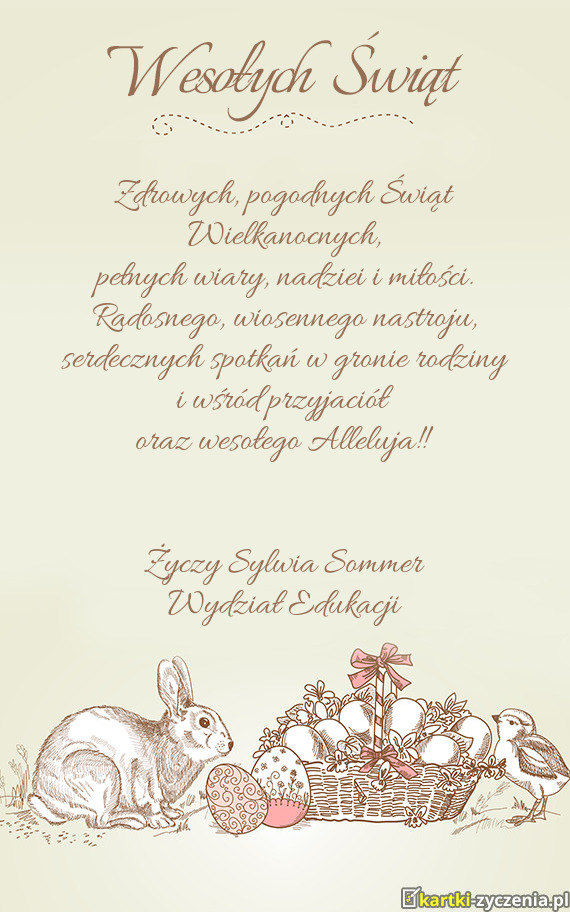 Wesołych Świąt
Zdrowych, pogodnych Świąt
Wielkanocnych,
pełnych wiary, nadziei i miłości.
Radosnego, wiosennego nastroju,
serdecznych spotkań w gronie rodziny
i wśród przyjaciół
oraz wesołego Alleluja!!
Życzy Sylwia Sommer
Wydział Edukacji
kartki-zyczenia.pl